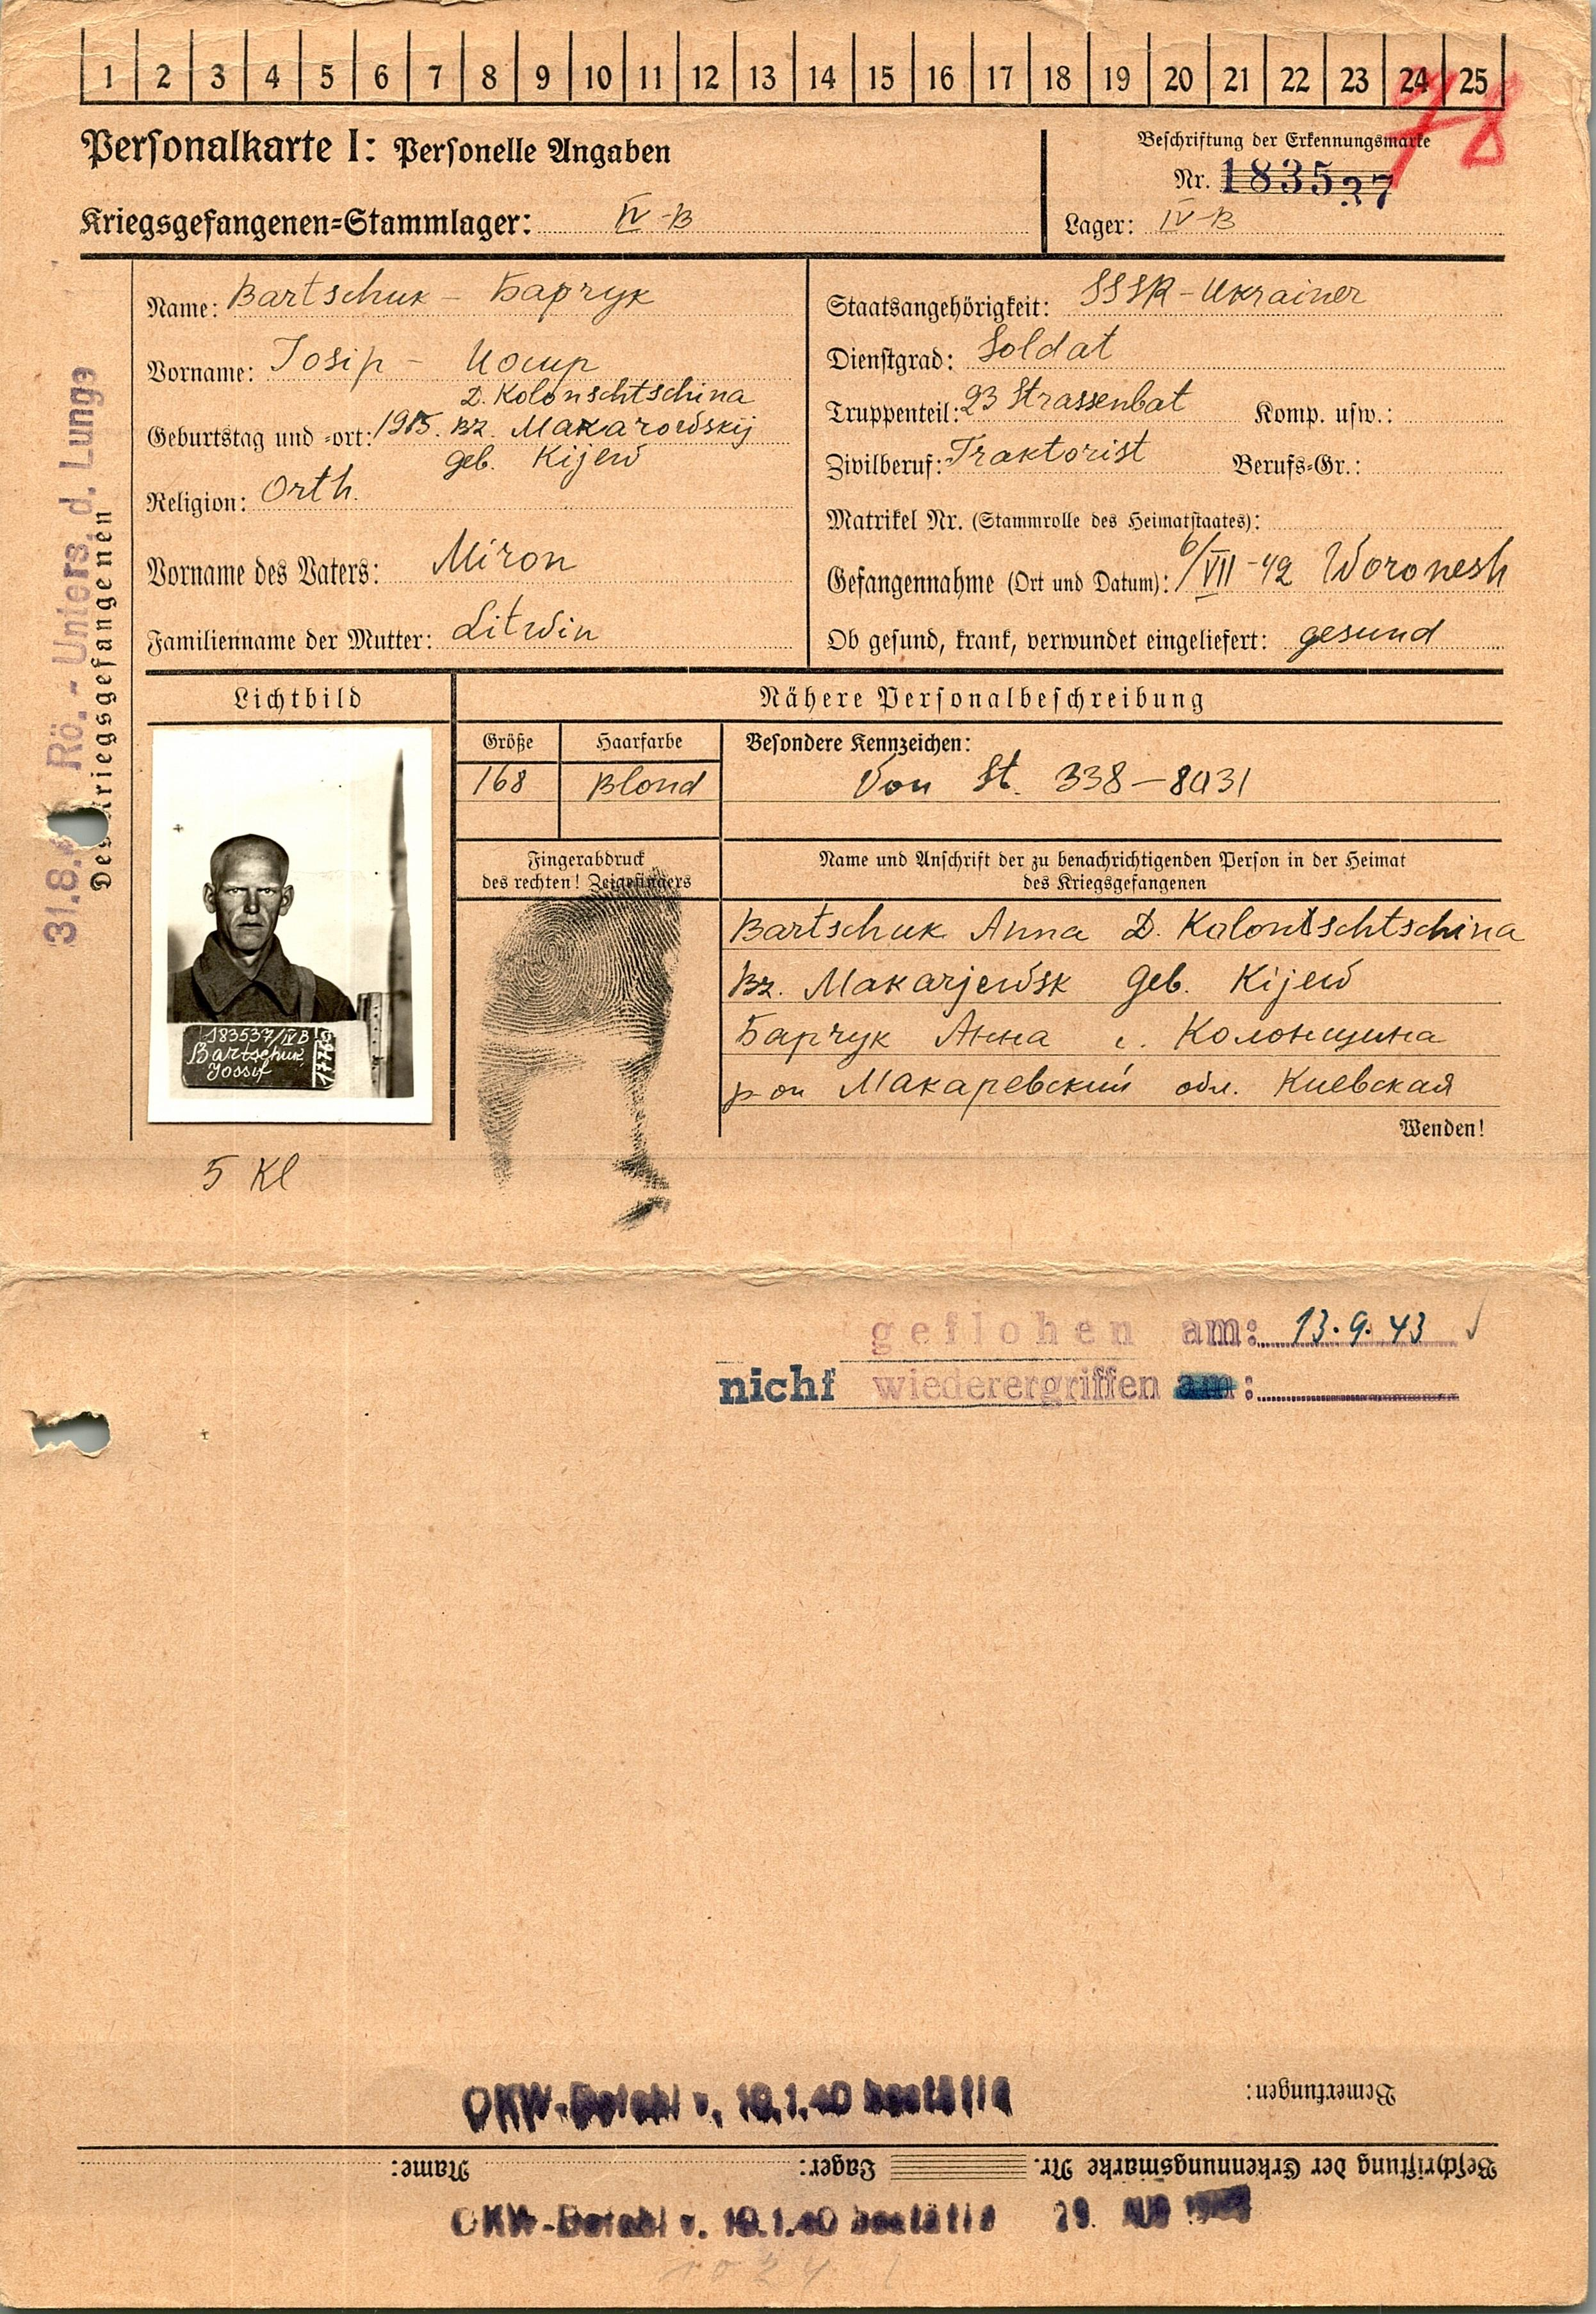 1 2 3 4 5 6 7 8 9 10 11 12 13 14 15 16 17 18 19 20 21 22 23 24 25
78
Personalkarte I: Personelle Angaben
Beschriftung der Erkennungsmarke
Nr. 183537
Kriegsgefangenen=Stammlager: IV-B
Lager: IV-B
Name: Bartschuk - Барчук
Vorname: Iosip - Иосип
D. Kolonschtschina
Geburtstag und =ort: 1915. Bz. Makarowskij
geb. Kijew
Religion: Orth.
Vorname des Vaters: Miron
Familienname der Mutter: Litwin
Staatsangehörigkeit: SSSR - Ukrainer
Dienstgrad: Soldat
Truppenteil: 23 Strassenbat Komp. usw.:
Zivilberuf: Traktorist Berufs=Gr.:
Matrikel Nr. (Stammrolle des Heimatstaates):
Gefangennahme (Ort und Datum): 6/VII-42 Woronesh
Ob gesund, krank, verwundet eingeliefert: gesund
31.8. Rö.-Unters. d. Lunge
Des Kriegsgefangenen
Lichtbild
Nähere Personalbeschreibung
Größe Haarfarbe Besondere Kennzeichen:
168 Blond Von St. 338-8031
Fingerabdruck
des rechten! Zeigefingers
Name und Anschrift der zu benachrichtigenden Person in der Heimat
des Kriegsgefangenen
Bartschuk Anna D. Kolontschtschina
Bz. Makarjewsk Geb. Kijew
Барчук Анна с. Колонщина
р-он Макаревский обл. Киевская
Wenden!
183537/IVB
Bartschuk,
Jossif
5 Kl
geflohen am: 13.9.43
nicht wiederergriffen am:
OKW-Befehl v. 10.1.40 bestätig
Bemerkungen:
Beschriftung der Erkennungsmarke Nr. Lager: Name:
OKW-Befehl v. 10.1.40 bestätig 29. AUG